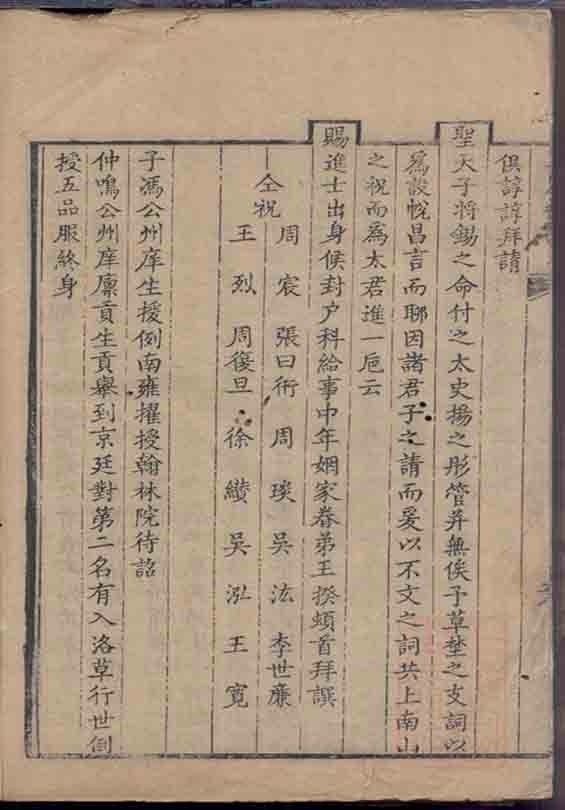 俱諄諄拜請
聖天子將錫之命付之太史揚之彤管并無俟予草埜之支詞以
為設帨昌言而聊因諸君子之請而爰以不文之詞共上南山
之祝而為太君進一巵云
賜進士出身候封户科給事中年姻家眷弟王揆頓首拜譔
仝祝
周宸 張曰術 周琰 吳汯 李世廉
王烈 周復旦 徐纘 吳泓 王寬
子馮公州庠生援例南雍擢授翰林院待詔
仲鳴公州庠廩貢生貢舉到京廷對第二名有入洛草行世例
授五品服終身